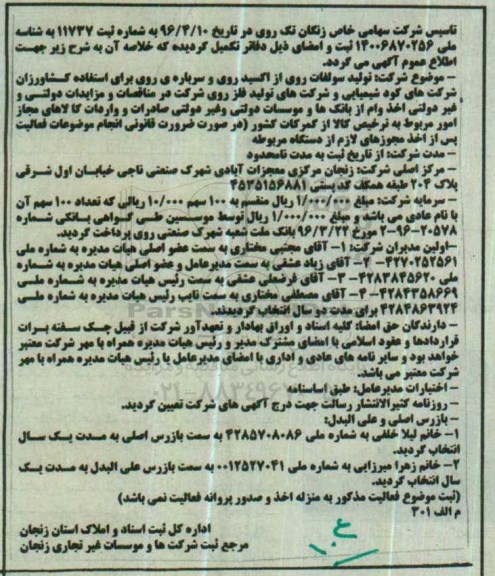 تاسیس شرکت سهامی خاص زنگان تک روی در تاریخ ۹۶/۴/۱۰ به شماره ثبت ۱۱۷۳۷ به شناسه
ملی ۱۴۰۰۶۸۷۰۲۵۶ ثبت و امضای ذیل دفاتر تکمیل گردیده که خلاصه آن به شرح زیر جهت
اطلاع عموم آگهی می گردد.
– موضوع شرکت: تولید سولفات روی از اکسید روی و سرباره ی روی برای استفاده کشاورزان
شرکت های کود شیمیایی و شرکت های تولید فلز روی شرکت در مناقصات و مزایدات دولتی و
غیر دولتی اخذ وام از بانک ها و موسسات دولتی وغیر دولتی صادرات و واردات کا لاهای مجاز
امور مربوط به ترخیص کالا از گمرکات کشور (در صورت ضرورت قانونی انجام موضوعات فعالیت
پس از اخذ مجوزهای لازم از دستگاه مربوطه
– مدت شرکت: از تاریخ ثبت به مدت نامحدود
– مرکز اصلی شرکت: زنجان مرکزی معجزات آبادی شهرک صنعتی ناجی خیابان اول شرقی
پلاک ۲۰۴ طبقه همکف کد پستی ۴۵۳۵۱۵۶۸۸۱
– سرمایه شرکت: مبلغ ۱/۰۰۰/۰۰۰ ریال منقسم به ۱۰۰ سهم ۱۰/۰۰۰ ریالی که تعداد ۱۰۰ سهم آن
با نام عادی می باشد و مبلغ ۱/۰۰۰/۰۰۰ ریال توسط موسسین طی گواهی بانکی شماره
۹۶-۲۰۵۷۸-۲ مورخ ۹۶/۳/۲۲ بانک ملت شعبه شهرک صنعتی روی پرداخت گردید.
–اولین مدیران شرکت: ۱– آقای مجتبی مختاری به سمت عضو اصلی هیات مدیره به شماره ملی
۴۲۷۰۲۵۲۵۶۱– ۲– آقای زیاد عشقی به سمت مدیرعامل و عضو اصلی هیات مدیره به شماره
ملی ۴۲۸۳۸۴۵۶۲۰– ۳– آقای قرضعلی عشقی به سمت رئیس هیات مدیره به شماره ملی
۴۲۸۴۳۵۸۶۶۹– ۴– آقای مصطفی مختاری به سمت نایب رئیس هیات مدیره به شماره ملی
۴۲۸۴۸۶۳۹۲۴ برای مدت دو سال انتخاب گردیدند.
– دارندگان حق امضا: کلیه اسناد و اوراق بهادار و تعهدآور شرکت از قبیل چک سفته برات
قراردادها و عقود اسلامی با امضای مشترک مدیر و رئیس هیات مدیره همراه با مهر شرکت معتبر
خواهد بود و سایر نامه های عادی و اداری با امضای مدیرعامل یا رئیس هیات مدیره همراه با مهر
شرکت معتبر می باشد.
– اختیارات مدیرعامل: طبق اساسنامه
– روزنامه کثیرالانتشار رسالت جهت درج آگهی های شرکت تعیین گردید.
– بازرس اصلی و علی البدل:
۱– خانم لیلا خلفی به شماره ملی ۴۲۸۵۷۰۸۰۸۶ به سمت بازرس اصلی به مدت یک سال
انتخاب گردید.
۲– خانم زهرا میرزایی به شماره ملی ۰۰۱۲۵۲۷۰۴۱ به سمت بازرس علی البدل به مدت یک
سال انتخاب گردید.
(ثبت موضوع فعالیت مذکور به منزله اخذ و صدور پروانه فعالیت نمی باشد)
م الف ۳۰۱
اداره کل ثبت اسناد و املاک استان زنجان
مرجع ثبت شرکت ها و موسسات غیر تجاری زنجان